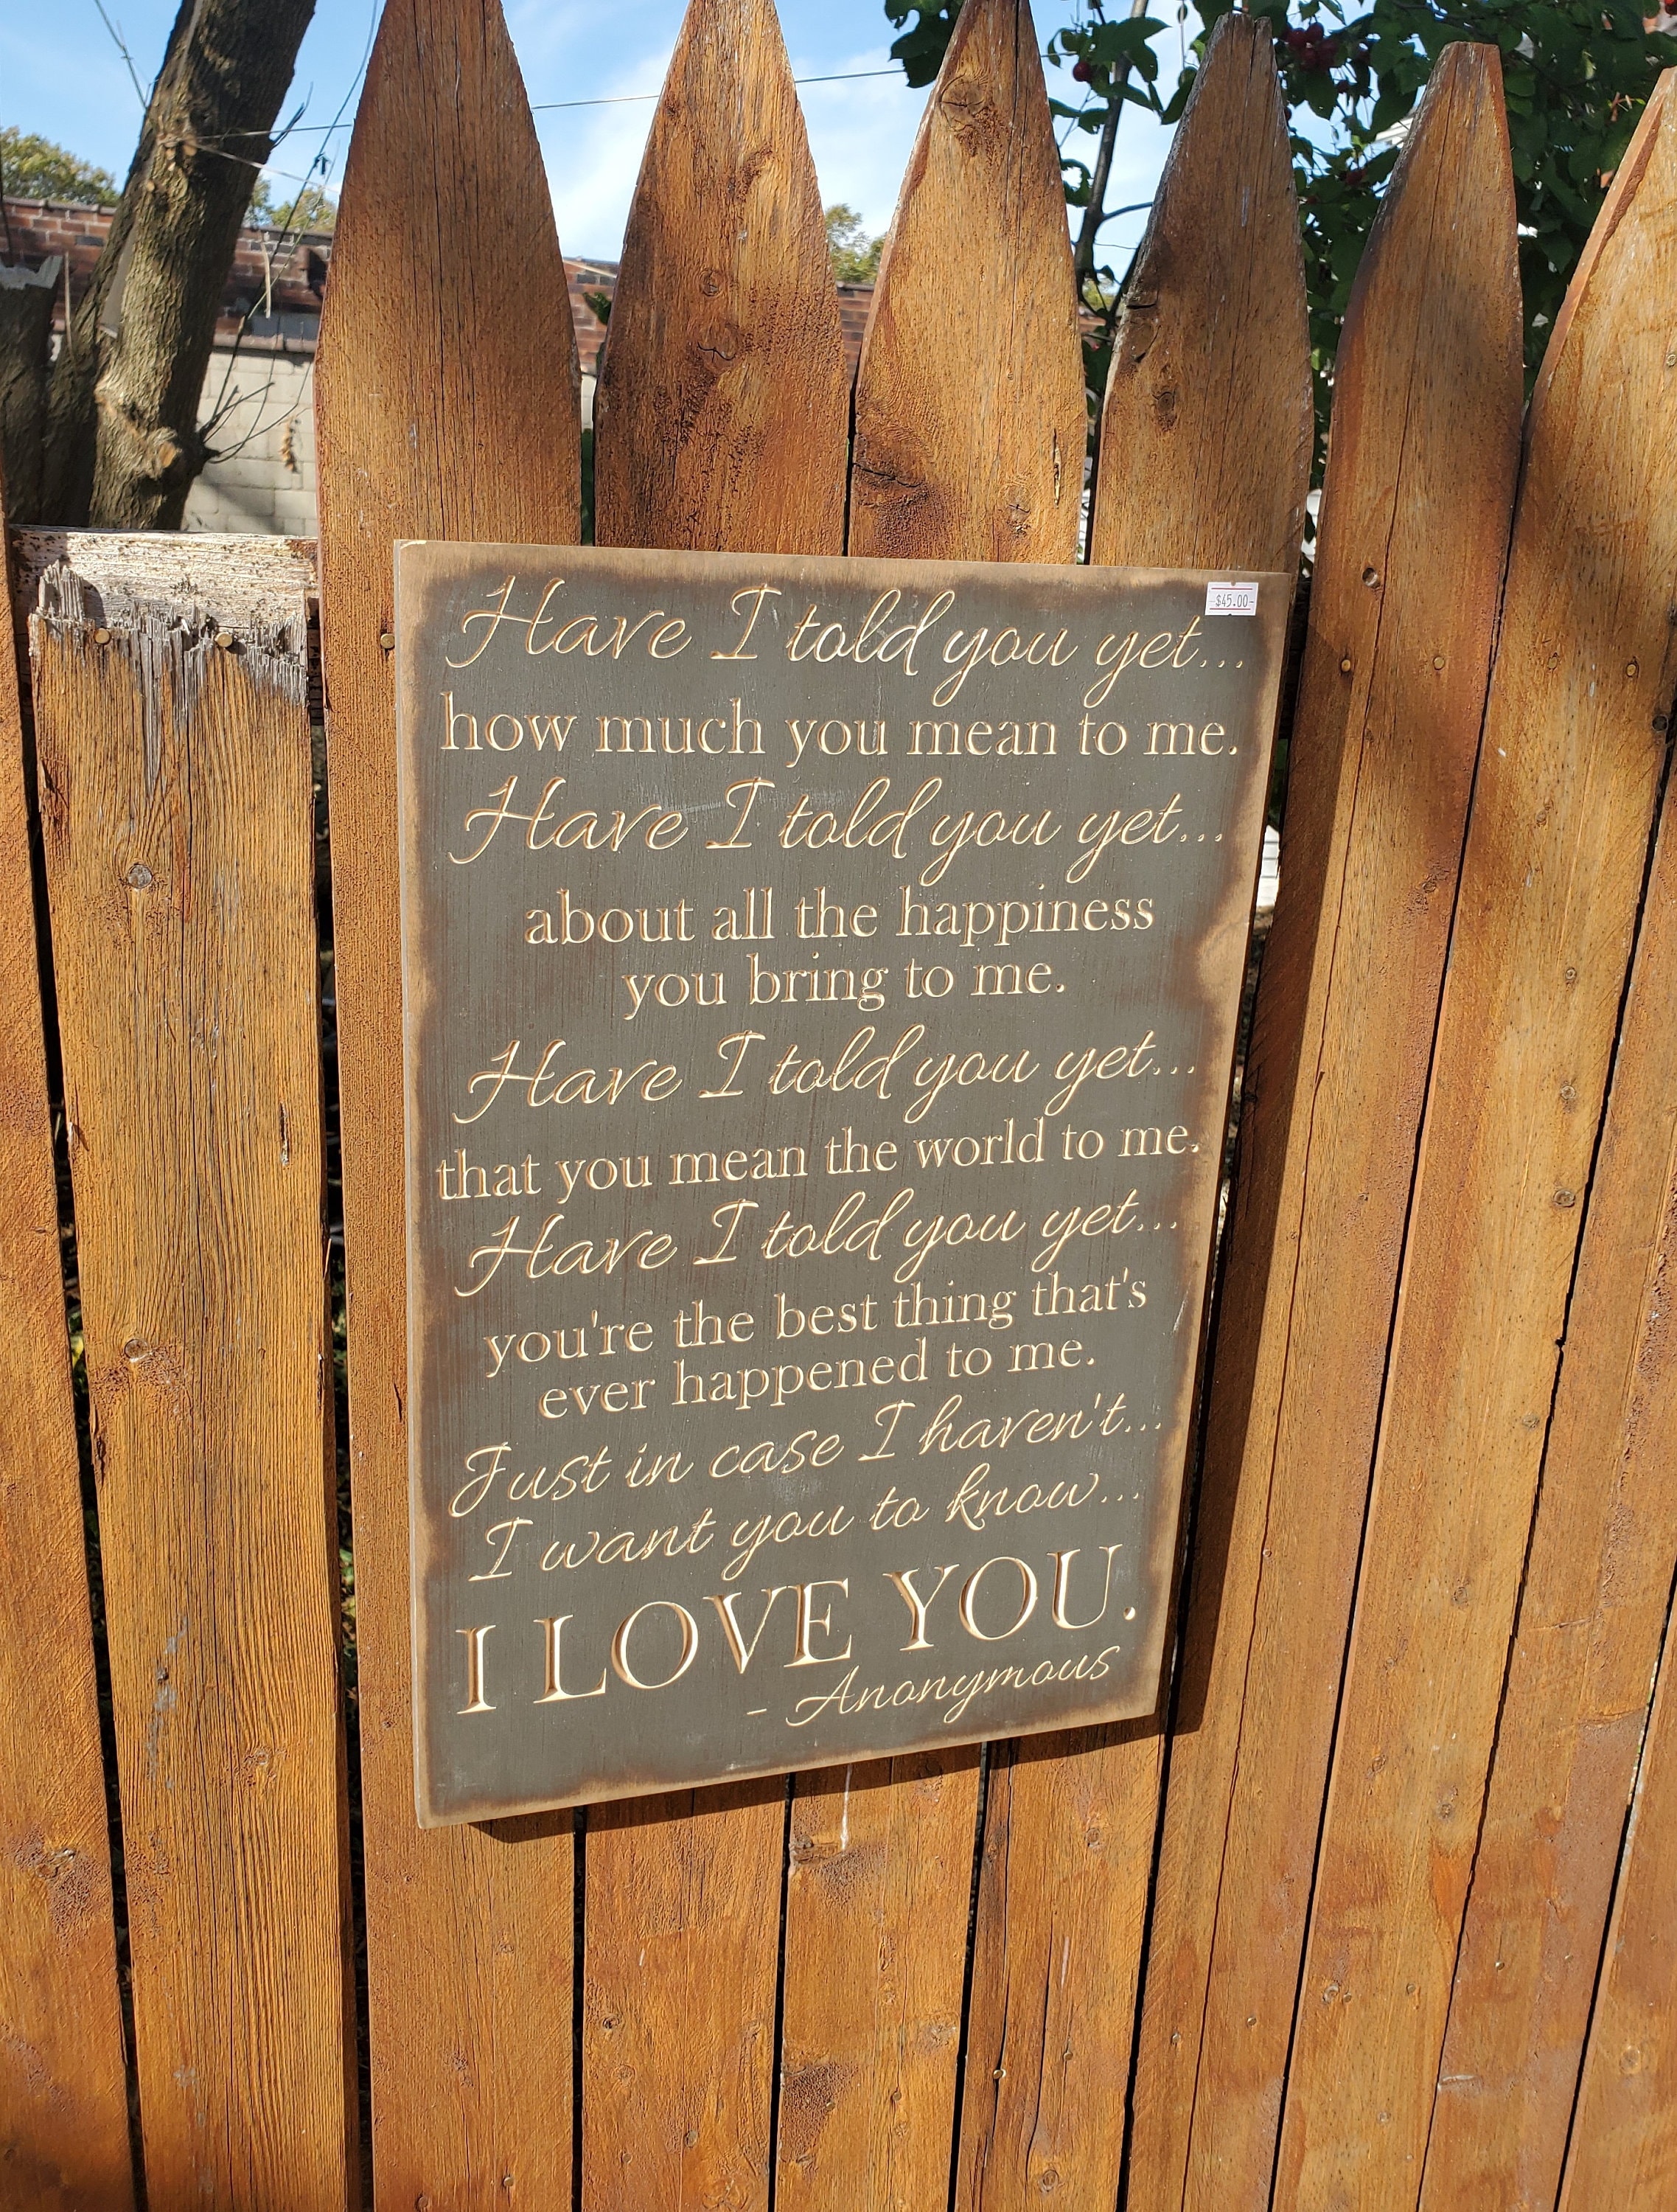 $45.00
Have I told you yet...
how much you mean to me.
Have I told you yet...
about all the happiness
you bring to me.
Have I told you yet...
that you mean the world to me.
Have I told you yet...
you're the best thing that's
ever happened to me.
Just in case I haven't...
I want you to know...
I LOVE YOU.
- Anonymous